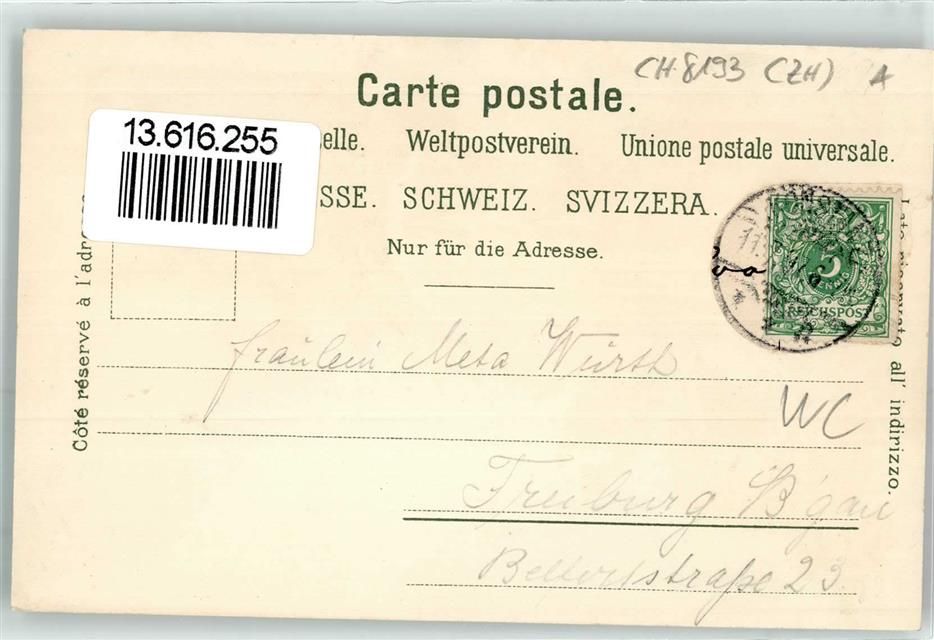 CH-8193 (ZH) A
Carte postale.
13.616.255
elle. Weltpostverein. Unione postale universale.
SSE. SCHWEIZ. SVIZZERA.
Nur für die Adresse.
Côté réservé à l'adresse
Lato riservato all' indirizzo.
5
REICHSPOST
Fräulein Meta Würth
WC
Freiburg B'gau
Belfortstraße 23.